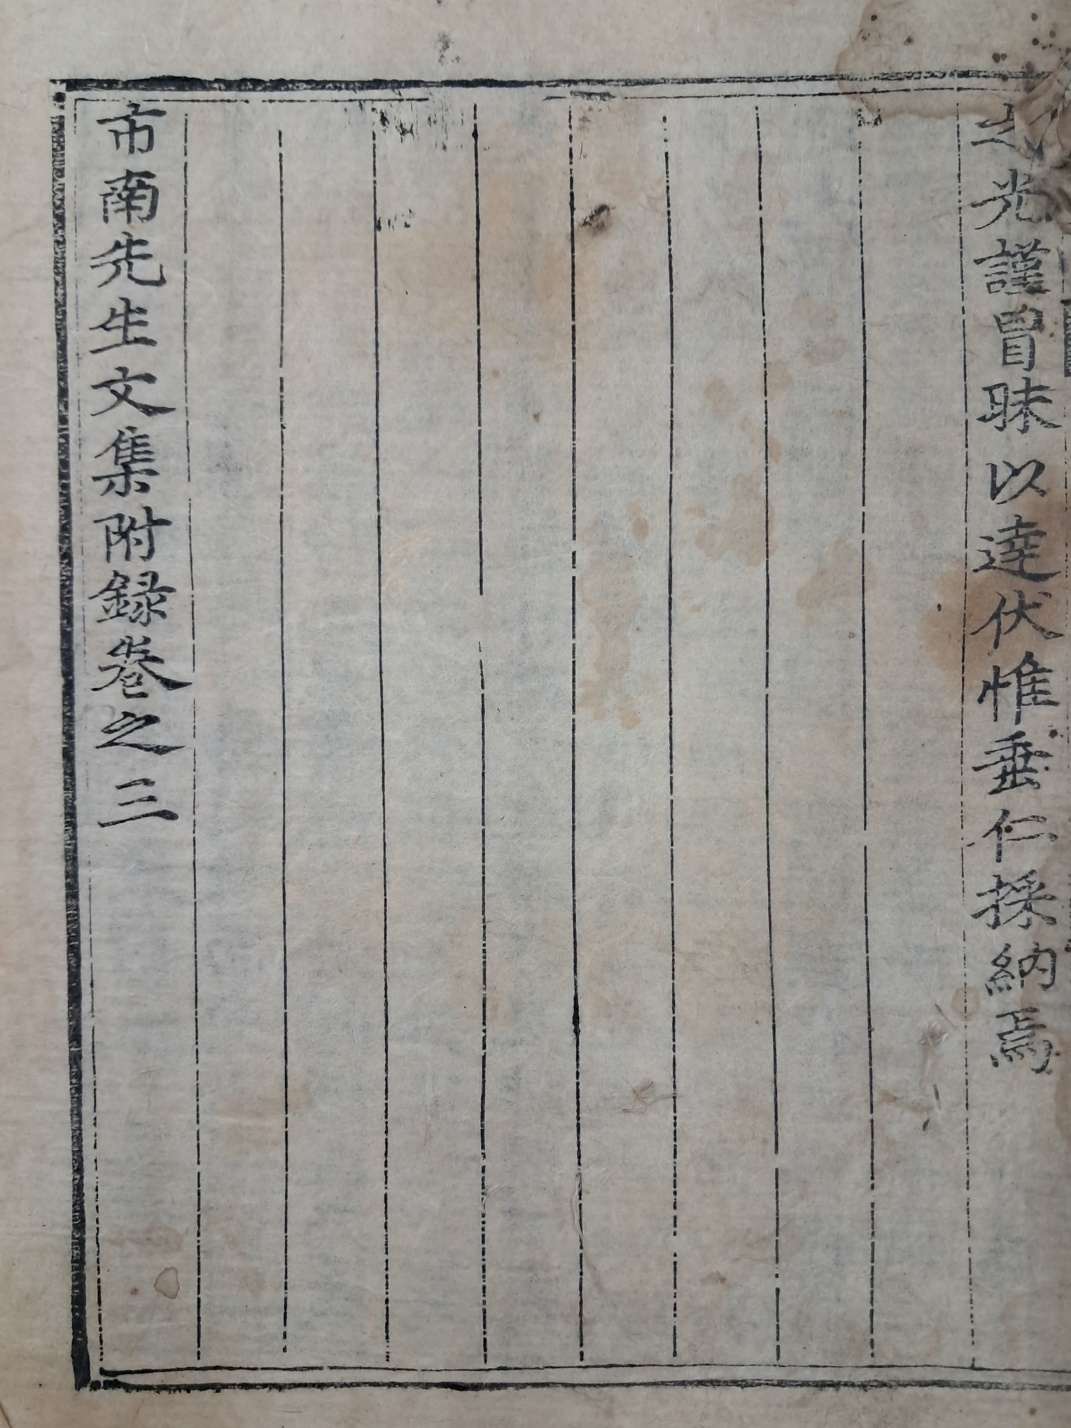 之光謹冒昧以達伏惟垂仁採納焉
市南先生文集附録卷之三